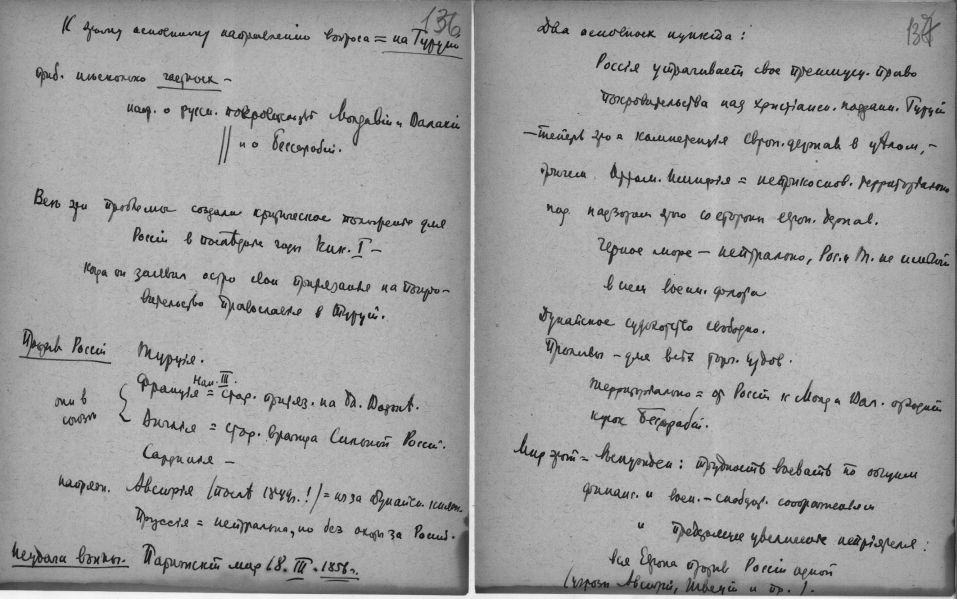 136
К этому основному направлению вопроса = на Турцию
приб. несколько частных –
напр. о русск. покровительст. Молдавіи и Валахіи
// и о Бессарабіи.
Все эти проблемы создали критическое положение для
Россіи в последние годы Ник. I –
когда он заявил остро свои притязания на покро-
вительство православія в Турціи.
Против Россіи Турція.
они в союзе
Франція Нап. III = стар. притяз. на Бл. Востоке.
Англія = стар. вражда сильной Россіи.
Сардинія –
напряж. Австрія (послѣ 1849 г.!) = из за Дунайск. княж.
Пруссія = нейтральна, но без охоты за Россію.
Неудача войны. Парижскій мир 18. III – 1856 г.
137
Два основных пункта:
Россія утрачивает свое преимущ. право
покровительства над христіанск. поддан. Турціи
– теперь это компетенция европ. держав в цѣлом, –
причем Оттом. Имперія = неприкоснов. территоріально
под надзором за это со стороны европ. держав.
Черное море – нейтрально, Рос. и Т. не имѣют
в нем воен. флота
Дунайское судоходство свободно.
Проливы – для всѣх торг. судов.
территоріально = от Россіи к Молд. и Вал. отходит
кусок Бессарабіи.
Мир этот = вынужден: трудность воевать по общим
финанс. и воен. – соображеніям
" преодоленіе увеличение непріятеля:
вся Европа против Россіи одной
(угрозы Австріи, Швеціи и пр.).